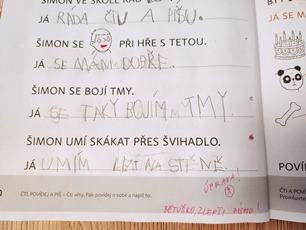 ŠIMON VE ŠKOLE RÁD
JÁ RÁDA ČTU A PÍŠU.
ŠIMON SE PŘI HŘE S TETOU.
JÁ SE MÁM DOBŘE.
ŠIMON SE BOJÍ TMY.
JÁ SE TAKÝ BOJÍM TMY
ŠIMON UMÍ SKÁKAT PŘES ŠVIHADLO.
JÁ UMÍM LÉZT NA STĚNĚ.
ČTI, POVÍDEJ A PIŠ – Čti věty. Pak povídej o sobě a napiš to.
BĚTUŠKO, ZLEPŠI PÍSMO!
POVÍ
ČTI A POVÍ